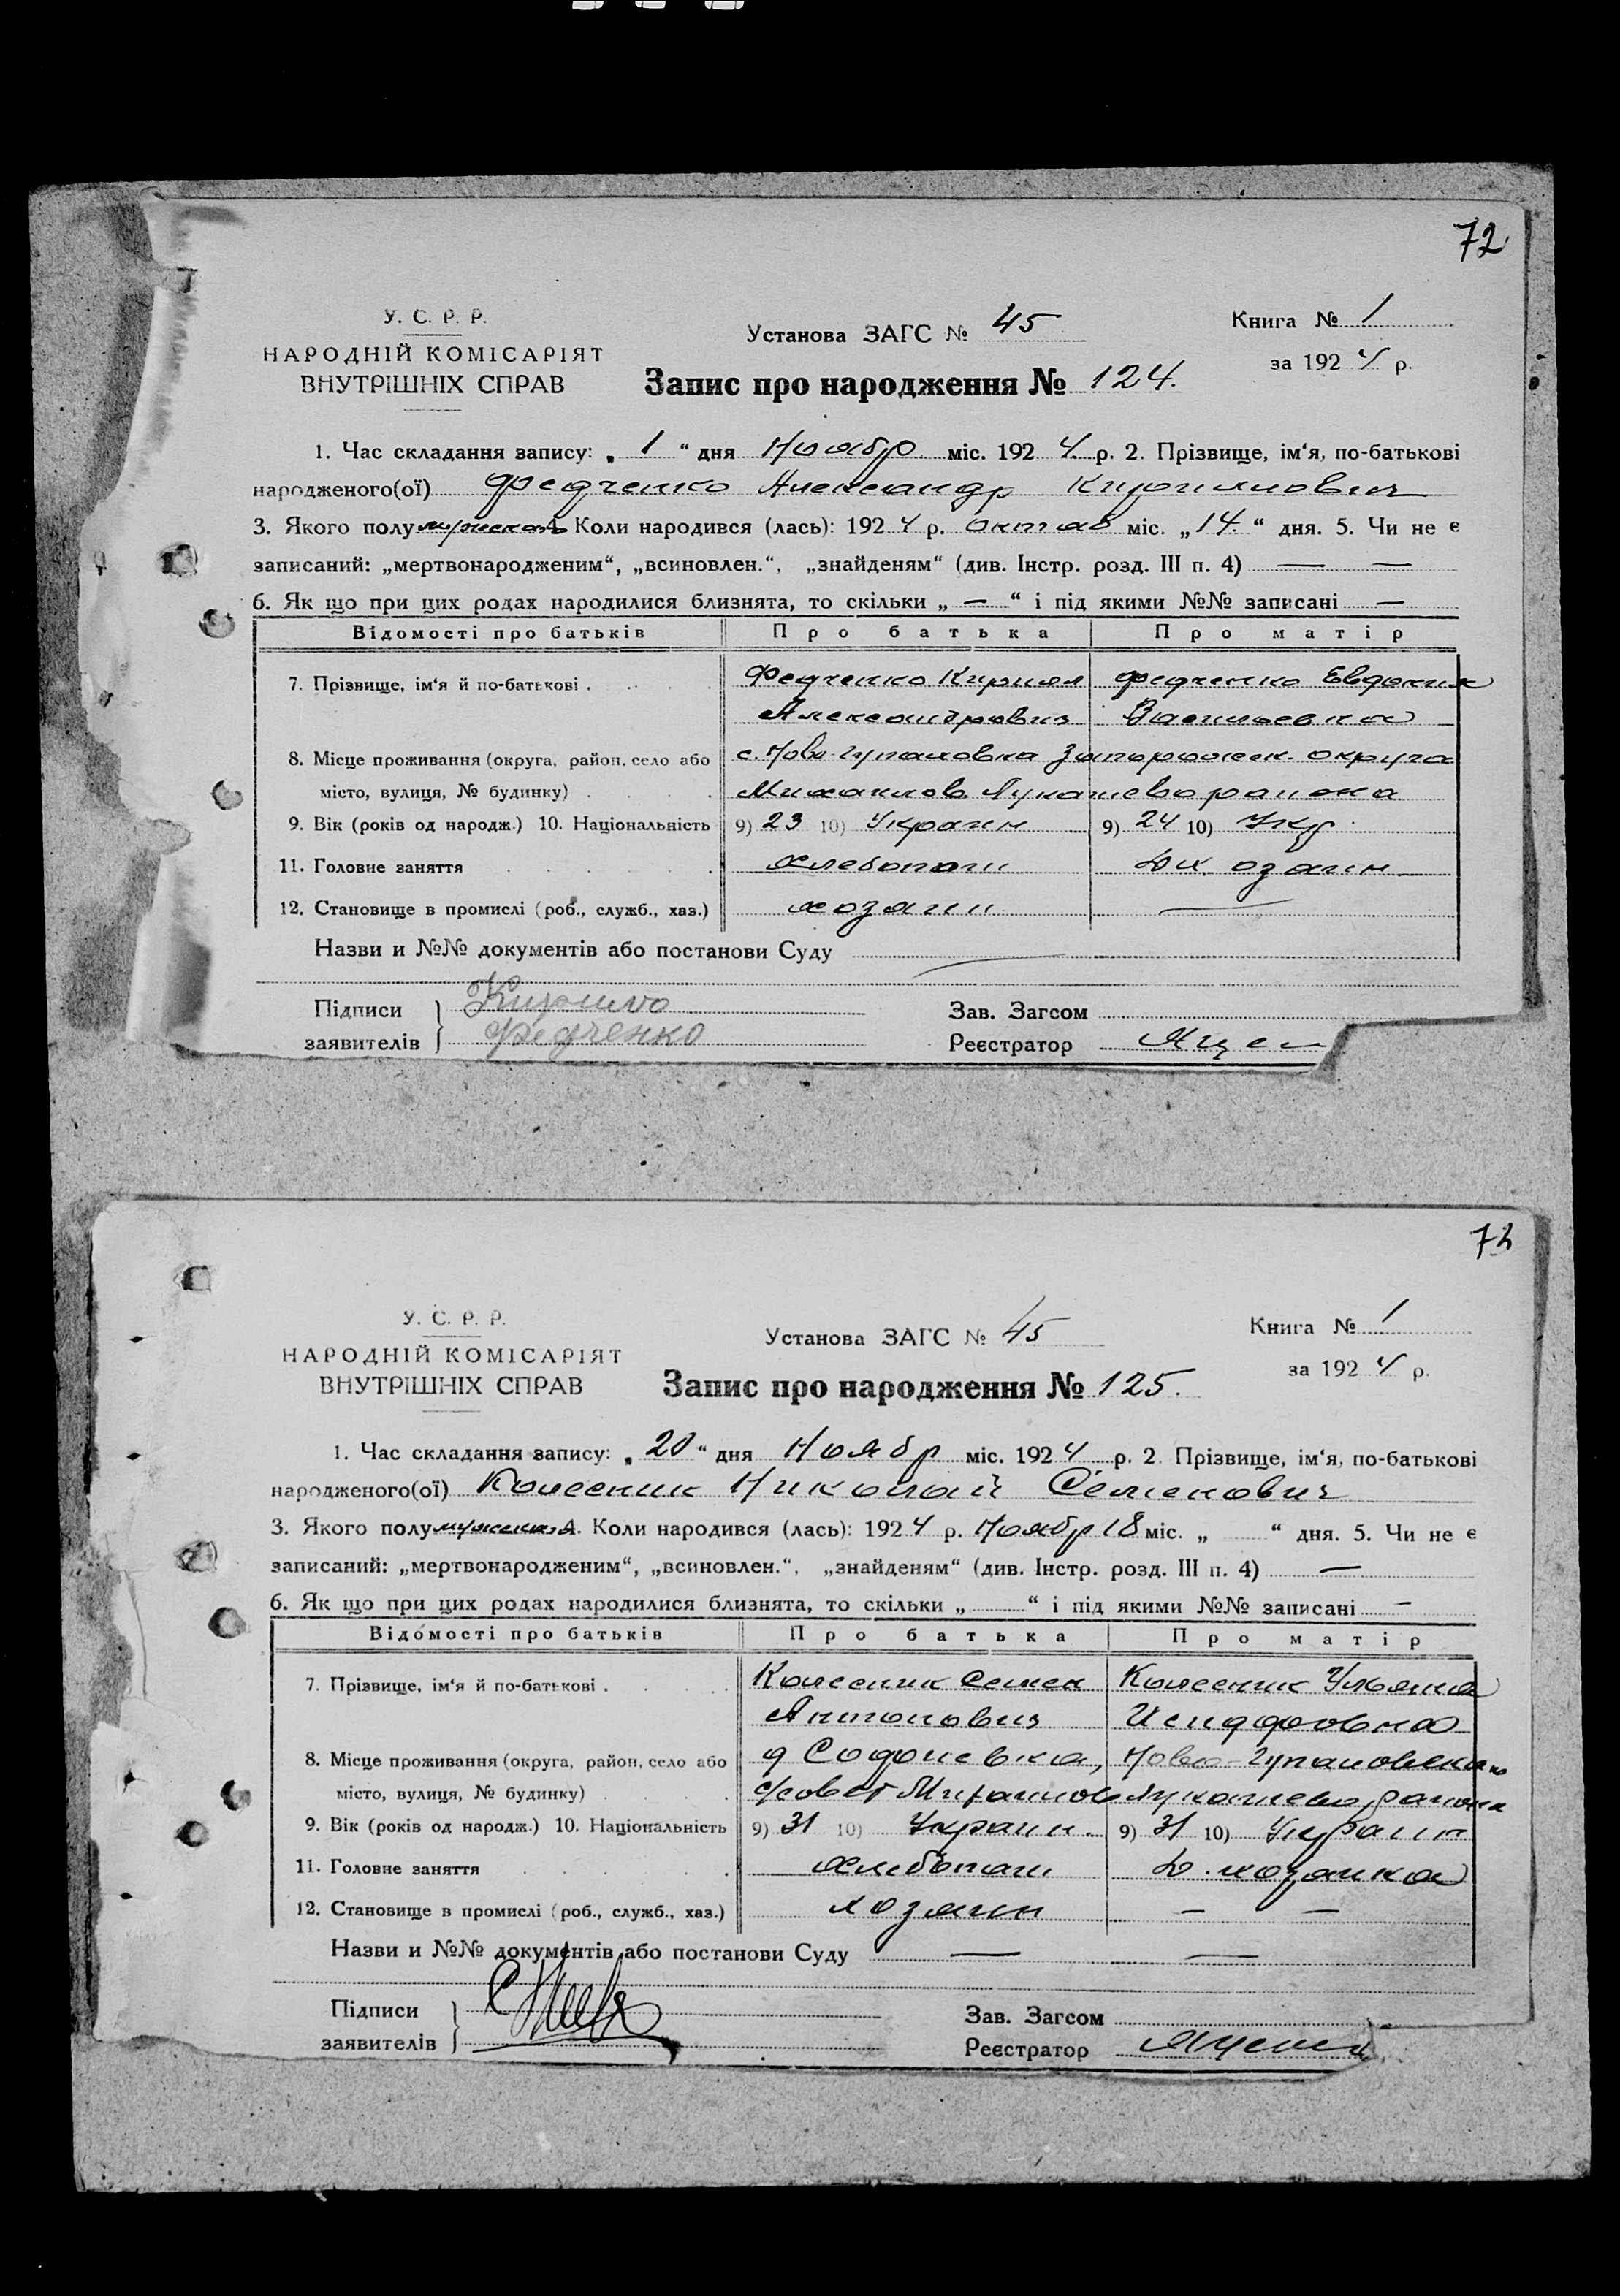 72
У. С. Р. Р.
НАРОДНІЙ КОМІСАРІЯТ
ВНУТРІШНІХ СПРАВ
Установа ЗАГС № 45
Книга № 1
за 1924 р.
Запис про народження № 124.
1. Час складання запису: „ 1 “ дня Ноябр міс. 1924 р. 2. Прізвище, ім‘я, по-батькові
народженого(ої) Федченко Александр Кирилович
3. Якого полу мужеска 4. Коли народився (лась): 1924 р. Октяб міс. „ 14. “ дня. 5. Чи не є
записаний: „мертвонародженим“, „всиновлен.“, „знайденям“ (див. Інстр. розд. III п. 4) — —
6. Як що при цих родах народилися близнята, то скільки „ — “ і під якими №№ записані —
Відомості про батьків Про батька Про матір
7. Прізвище, ім‘я й по-батькові . Федченко Кирилл Федченко Евдокия
Александрович Васильевна
8. Місце проживання (округа, район, село або с. Ново-Гупаловка Запорожск. округа
місто, вулиця, № будинку) Михайлово Лукашево района
9. Вік (років од народж.) 10. Національність 9) 23 10) Украин 9) 24 10) Укр
11. Головне заняття хлебопаш
12. Становище в промислі (роб., служб., хаз.) хозяин —
Назви и №№ документів або постанови Суду —
Підписи заявителів Кирило
Федченко
Зав. Загсом
Реєстратор Яцен
72
У. С. Р. Р.
НАРОДНІЙ КОМІСАРІЯТ
ВНУТРІШНІХ СПРАВ
Установа ЗАГС № 45
Книга № 1
за 1924 р.
Запис про народження № 125.
1. Час складання запису: „ 20 “ дня Ноябр міс. 1924 р. 2. Прізвище, ім‘я, по-батькові
народженого(ої) Колесник Николай Семенович
3. Якого полу 4. Коли народився (лась): 1924 р. Ноябр 18 міс. „ “ дня. 5. Чи не є
записаний: „мертвонародженим“, „всиновлен.“, „знайденям“ (див. Інстр. розд. III п. 4) —
6. Як що при цих родах народилися близнята, то скільки „ “ і під якими №№ записані —
Відомості про батьків Про батька Про матір
7. Прізвище, ім‘я й по-батькові . Колесник Семен Колесник Ульяна
Антонович Исидоровна
8. Місце проживання (округа, район, село або Ново-Гупаловска
місто, вулиця, № будинку) Михайлово Лукашево района
9. Вік (років од народж.) 10. Національність 9) 31 10) Украин. 9) 31 10) Украин
11. Головне заняття хлебопаш Д. хозяйка
12. Становище в промислі (роб., служб., хаз.) хозяин — —
Назви и №№ документів або постанови Суду — —
Підписи
заявителів
Зав. Загсом
Реєстратор